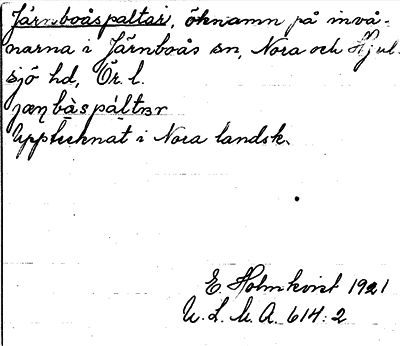 Järnboåspaltar, öknamn på invå-
narna i Järnboås sn, Nora och Hjul-
sjö hd, Ör. l.
jæɳbàspáltar
Upptecknat i Nora landsk.
E. Holmkvist 1921
U. L. M. A. 614:2